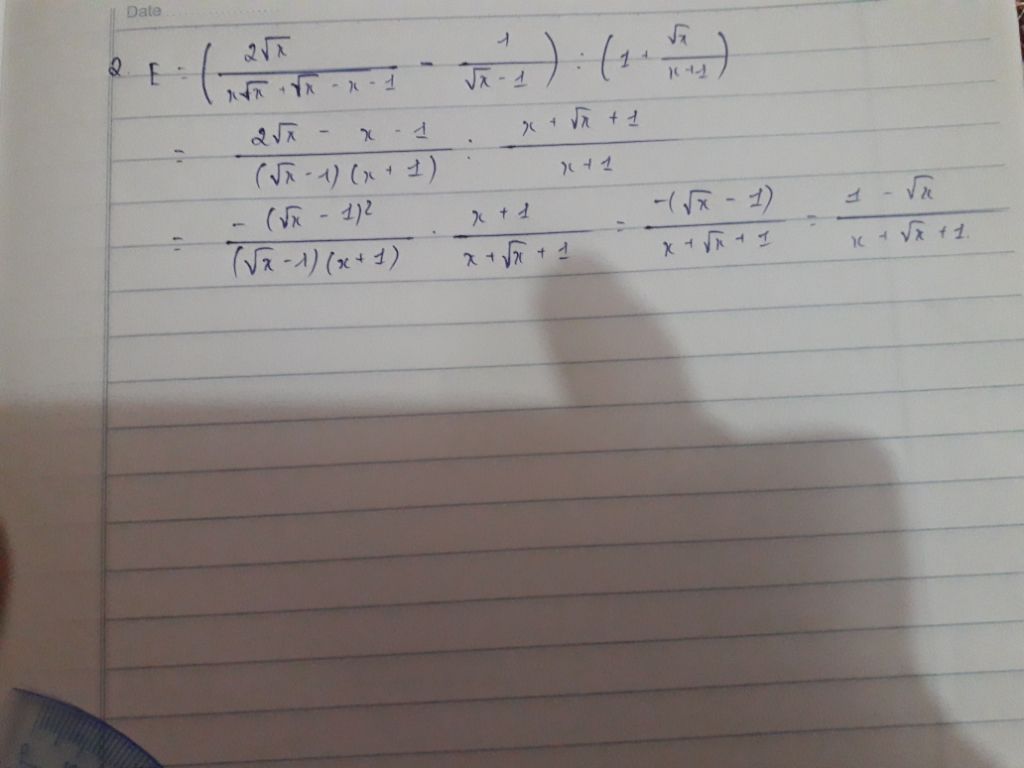 Date
2. E = ( 2√x / (x√x + √x - x - 1) - 1 / (√x - 1) ) : ( 1 + √x / (x + 1) )
= (2√x - x - 1) / ((√x - 1)(x + 1)) : (x + √x + 1) / (x + 1)
= -(√x - 1)² / ((√x - 1)(x + 1)) . (x + 1) / (x + √x + 1) = -(√x - 1) / (x + √x + 1) = (1 - √x) / (x + √x + 1).